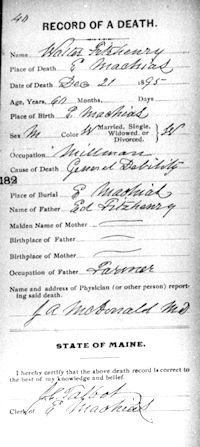 40
RECORD OF A DEATH.
Name Walter Fitzhenry
Place of Death E Machias
Date of Death Dec 21 1895
Age, Years, 60 Months, Days
Place of Birth E Machias
Sex M Color W Married, Single, Widowed or Divorced. W
Occupation Millman
Cause of Death General Debility
182
Place of Burial E Machias
Name of Father Ed Fitzhenry
Maiden Name of Mother
Birthplace of Father
Birthplace of Mother
Occupation of Father Farmer
Name and address of Physician (or other person) report-
ing said death.
J A McDonald MD
STATE OF MAINE.
I hereby certify that the above death record is correct to
the best of my knowledge and belief.
Talbot
Clerk of E Machias